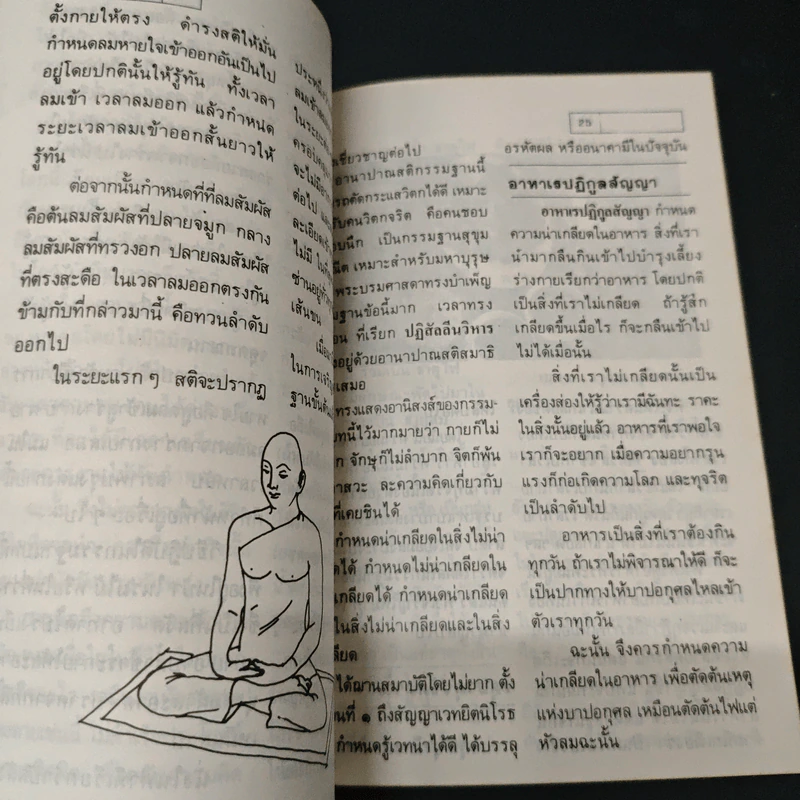 ตั้งกายให้ตรง ดำรงสติให้มั่น
กำหนดลมหายใจเข้าออกอันเป็นไป
อยู่โดยปกตินั้นให้รู้ทัน ทั้งเวลา
ลมเข้า เวลาลมออก แล้วกำหนด
ระยะเวลาลมเข้าออกสั้นยาวให้
รู้ทัน
ต่อจากนั้นกำหนดที่ที่ลมสัมผัส
คือต้นลมสัมผัสที่ปลายจมูก กลาง
ลมสัมผัสที่ทรวงอก ปลายลมสัมผัส
ที่ตรงสะดือ ในเวลาลมออกตรงกัน
ข้ามกับที่กล่าวมานี้ คือทวนลำดับ
ออกไป
ในระยะแรก ๆ สติจะปรากฏ
ลมเข้า
ในระยะ
จะไม่มี
ต่อไป
ไม่มี
เส้นขน
ในการเจริญ
25
เชี่ยวชาญต่อไป
อานาปาณสติกรรมฐานนี้
ตัดกระแสวิตกได้ดี เหมาะ
คนวิตกจริต คือคนชอบ
นึก เป็นกรรมฐานสุขุม
เหมาะสำหรับมหาบุรุษ
พระบรมศาสดาทรงบำเพ็ญ
ฐานข้อนี้มาก เวลาทรง
ที่เรียก ปฏิสัลลีนวิหาร
อยู่ด้วยอานาปาณสติสมาธิ
เสมอ
ทรงแสดงอานิสงส์ของกรรม-
นี้ไว้มากมายว่า กายก็ไม่
จักษุก็ไม่ลำบาก จิตก็พ้น
ละความคิดเกี่ยวกับ
ที่เคยชินได้
กำหนดน่าเกลียดในสิ่งไม่น่า
ได้ กำหนดไม่น่าเกลียดใน
เกลียดได้ กำหนดน่าเกลียด
ในสิ่งไม่น่าเกลียดและในสิ่ง
ได้ฌานสมาบัติโดยไม่ยาก ตั้ง
ที่ ๑ ถึงสัญญาเวทยิตนิโรธ
กำหนดรู้เวทนาได้ดี ได้บรรลุ
อรหัตผล หรืออนาคามีในปัจจุบัน
อาหาเรปฏิกูลสัญญา
อาหาเรปฏิกูลสัญญา กำหนด
ความน่าเกลียดในอาหาร สิ่งที่เรา
นำมากลืนกินเข้าไปบำรุงเลี้ยง
ร่างกายเรียกว่าอาหาร โดยปกติ
เป็นสิ่งที่เราไม่เกลียด ถ้ารู้สึก
เกลียดขึ้นเมื่อไร ก็จะกลืนเข้าไป
ไม่ได้เมื่อนั้น
สิ่งที่เราไม่เกลียดนั้นเป็น
เครื่องส่องให้รู้ว่าเรามีฉันทะ ราคะ
ในสิ่งนั้นอยู่แล้ว อาหารที่เราพอใจ
เราก็จะอยาก เมื่อความอยากรุน
แรงก็ก่อเกิดความโลภ และทุจริต
เป็นลำดับไป
อาหารเป็นสิ่งที่เราต้องกิน
ทุกวัน ถ้าเราไม่พิจารณาให้ดี ก็จะ
เป็นปากทางให้บาปอกุศลไหลเข้า
ตัวเราทุกวัน
ฉะนั้น จึงควรกำหนดความ
น่าเกลียดในอาหาร เพื่อตัดต้นเหตุ
แห่งบาปอกุศล เหมือนตัดต้นไฟแต่
หัวลมฉะนั้น